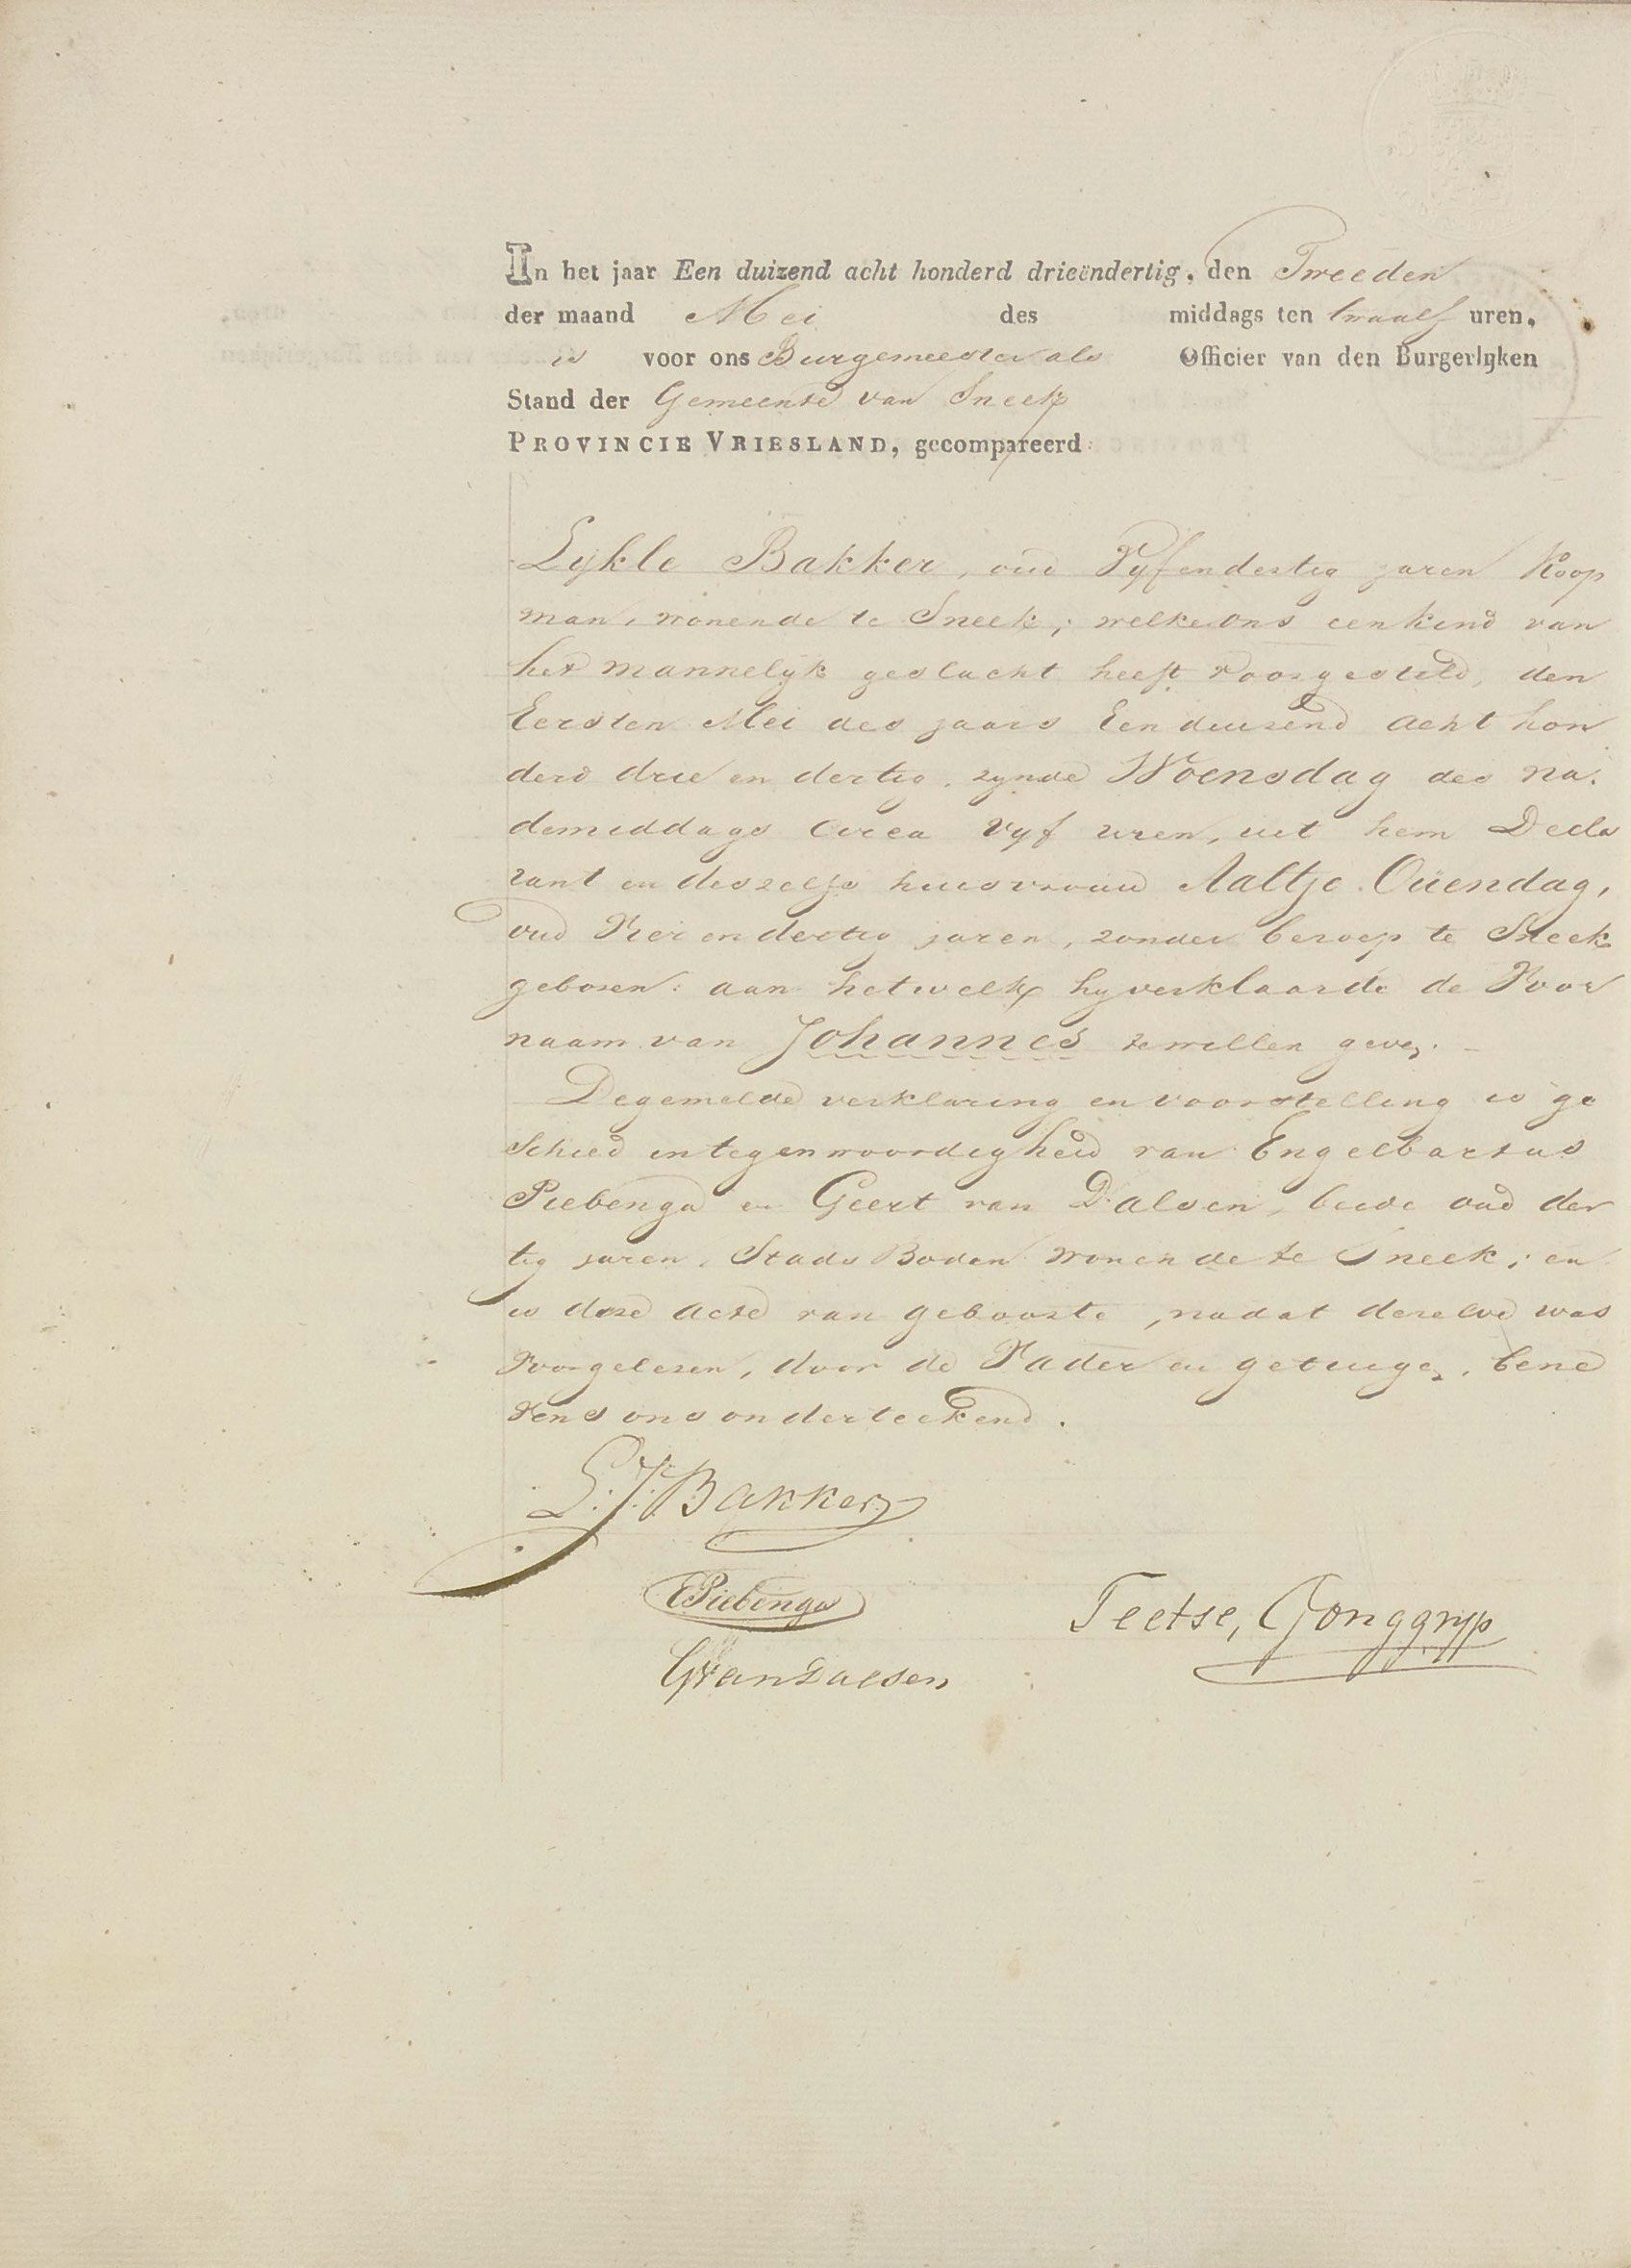 In het jaar Een duizend acht honderd drieëndertig, den Tweeden
der maand Mei des middags ten twaalf uren,
is voor ons Burgemeester als Officier van den Burgerlijken
Stand der Gemeente van Sneek
PROVINCIE VRIESLAND, gecompareerd
Lykle Bakker, oud Vyfendertig jaren Koop
man, wonende te Sneek; welke ons een kind van
het mannelijk geslacht heeft voorgesteld, den
Eersten Mei des jaars Een duizend acht hon
derd drie en dertig, zynde Woensdag des na.
demiddags circa vyf uren, uit hem Decla
rant en deszelfs huisvrouw Aaltje Ouendag,
oud Vier en dertig jaren, zonder beroep te Sneek
geboren: aan hetwelk hy verklaarde de Voor
naam van Johannes te willen geven.
De gemelde verklaring en voorstelling is ge
schied in tegenwoordigheid van Engelbartus
Piebenga en Geert van Dalsen, beide oud der
tig jaren, Stads Boden wonende te Sneek; en
is deze acte van geboorte, nadat dezelve was
voorgelezen, door de Vader en getuigen, bene
vens ons onderteekend.
L. J. Bakker
E Piebenga
Teetse, Gonggryp
G van Dalsen